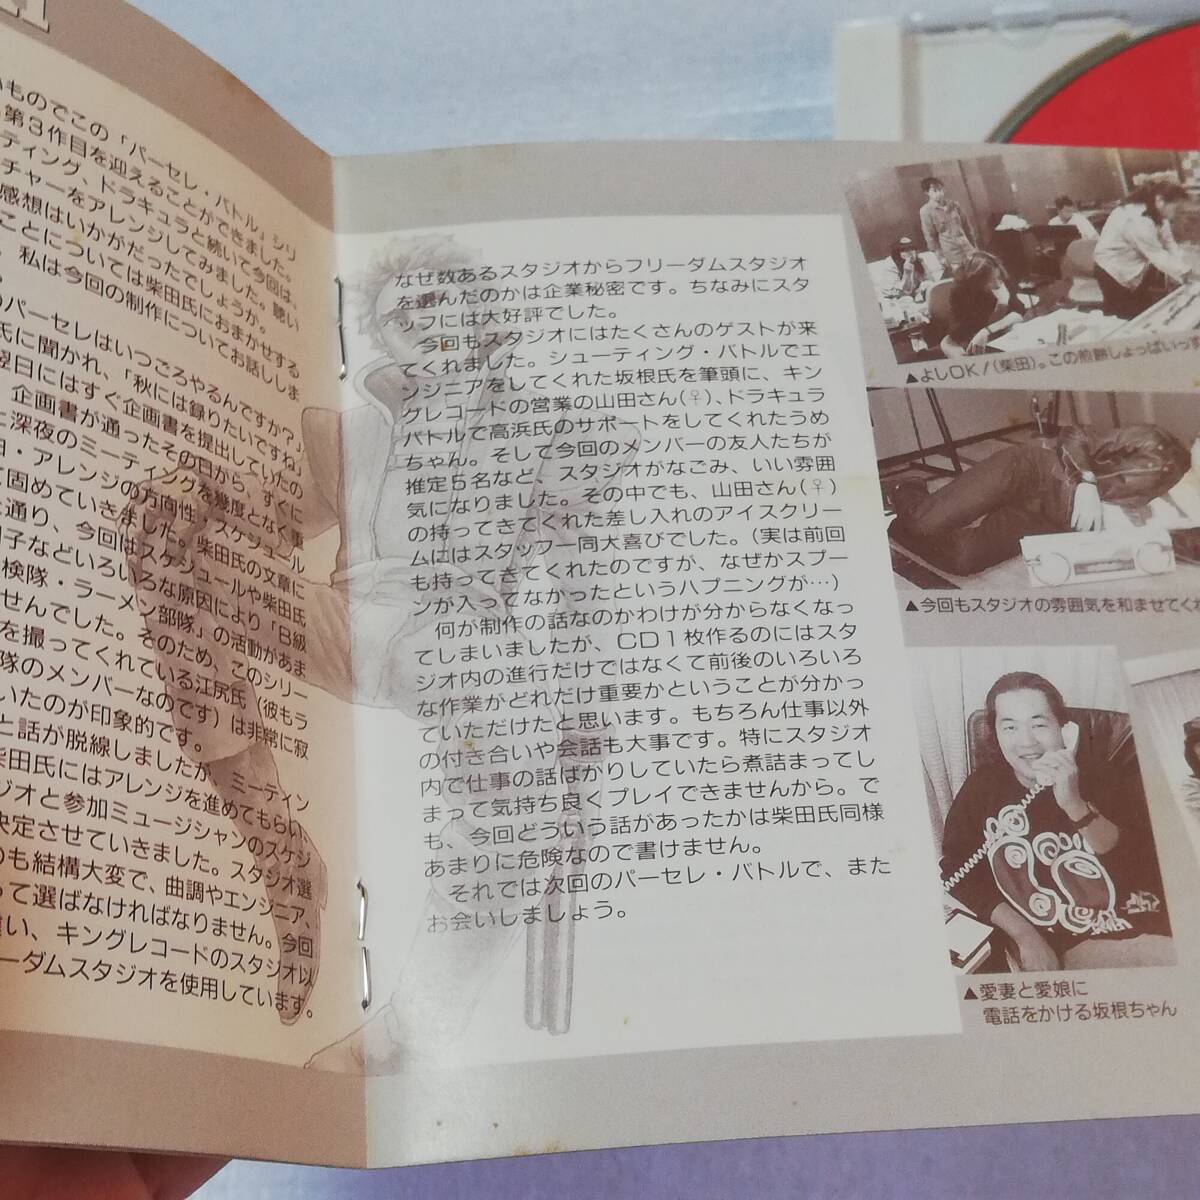 ものでこの「パーセレ・バトル」シリ
第3作目を迎えることができました。
ティング、ドラキュラと続いて今回は、
チャーをアレンジしてみました。聴い
感想はいかがだったでしょうか。
ことについては柴田氏におまかせする
、私は今回の制作についてお話ししま
のパーセレはいつごろやるんですか？」
氏に聞かれ、「秋には録りたいですね」
翌日にはすぐ企画書を提出していたの
企画書が通ったその日から、すぐに
深夜のミーティングを幾度となく重
・アレンジの方向性、スケジュール
て固めていきました。柴田氏の文章に
通り、今回はスケジュールや柴田氏
子などいろいろな原因により「B級
検隊・ラーメン部隊」の活動があま
せんでした。そのため、このシリー
を撮ってくれている江尻氏（彼もラ
隊のメンバーなのです）は非常に寂
いたのが印象的です。
と話が脱線しましたが、ミーティン
柴田氏にはアレンジを進めてもらい、
ジオと参加ミュージシャンのスケジ
決定させていきました。スタジオ選
のも結構大変で、曲調やエンジニア、
って選ばなければなりません。今回
違い、キングレコードのスタジオ以
ーダムスタジオを使用しています。
なぜ数あるスタジオからフリーダムスタジオ
を選んだのかは企業秘密です。ちなみにスタ
ッフには大好評でした。
今回もスタジオにはたくさんのゲストが来
てくれました。シューティング・バトルでエ
ンジニアをしてくれた坂根氏を筆頭に、キン
グレコードの営業の山田さん（♀）、ドラキュラ
バトルで高浜氏のサポートをしてくれたうめ
ちゃん。そして今回のメンバーの友人たちが
推定5名など、スタジオがなごみ、いい雰囲
気になりました。その中でも、山田さん（♀）
の持ってきてくれた差し入れのアイスクリー
ムにはスタッフ一同大喜びでした。（実は前回
も持ってきてくれたのですが、なぜかスプー
ンが入ってなかったというハプニングが…）
何が制作の話なのかわけが分からなくなっ
てしまいましたが、CD1枚作るのにはスタ
ジオ内の進行だけではなくて前後のいろいろ
な作業がどれだけ重要かということが分かっ
ていただけたと思います。もちろん仕事以外
の付き合いや会話も大事です。特にスタジオ
内で仕事の話ばかりしていたら煮詰まってし
まって気持ち良くプレイできませんから。で
も、今回どういう話があったかは柴田氏同様
あまりに危険なので書けません。
それでは次回のパーセレ・バトルで、また
お会いしましょう。
▲よしOK！（柴田）。この煎餅しょっぱいっす
▲今回もスタジオの雰囲気を和ませてくれ
▲愛妻と愛娘に
電話をかける坂根ちゃん